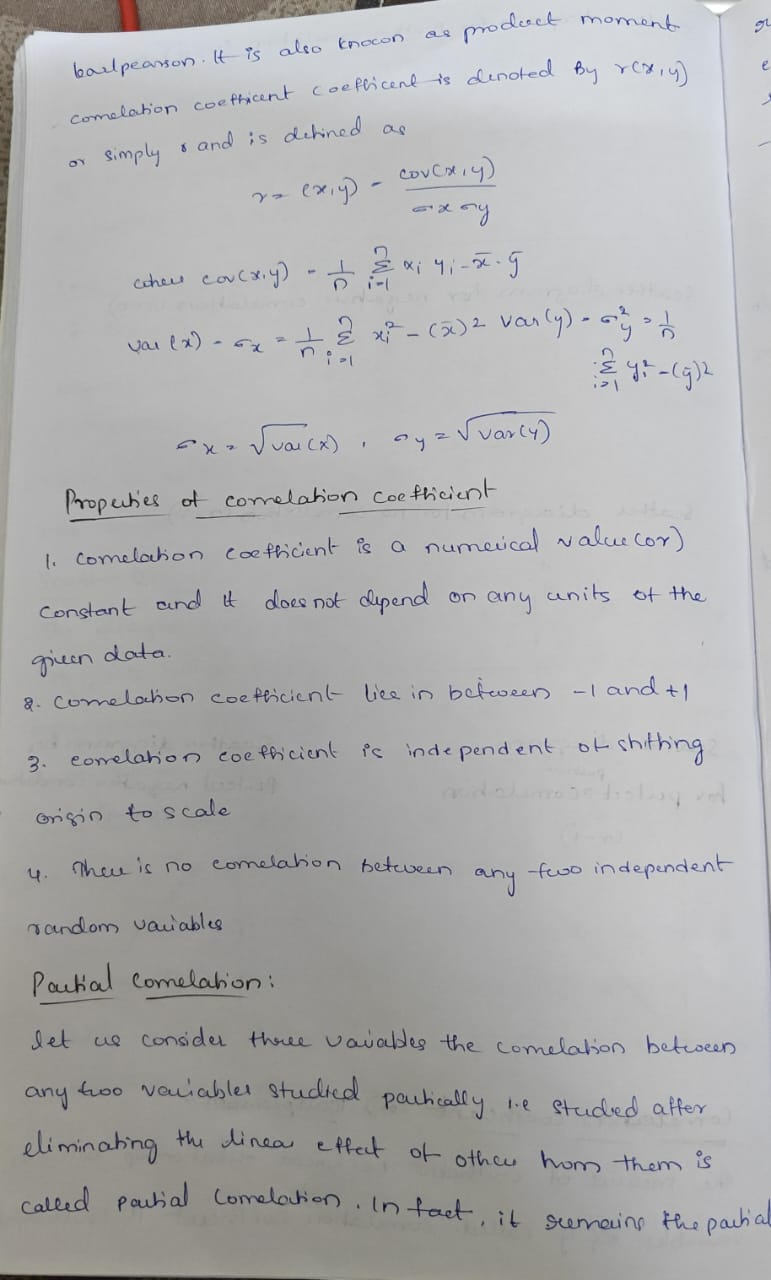 karlpearson. It is also known as product moment
correlation coefficent coefficent is denoted By r(x,y)
or simply r and is defined as
r = (x,y) = cov(x,y) / σx σy
where cov(x,y) = 1/n Σ_{i=1}^{n} xi yi - x̄ . ȳ
var(x) = σx = 1/n Σ_{i=1}^{n} xi² - (x̄)2 var(y) = σy² = 1/n
Σ_{i=1}^{n} yi² - (ȳ)2
σx = √var(x) , σy = √var(y)
Properties of correlation coefficient
1. correlation coefficient is a numerical value (or)
constant and it does not depend on any units of the
given data.
2. correlation coefficient lies in between -1 and +1
3. correlation coefficient is independent of shifting
origin to scale
4. There is no correlation between any two independent
random variables
Partial correlation:
let us consider three variables the correlation between
any two variables studied partically i.e studed after
eliminating the linear effect of other from them is
called partial correlation. In fact, it remains the partial